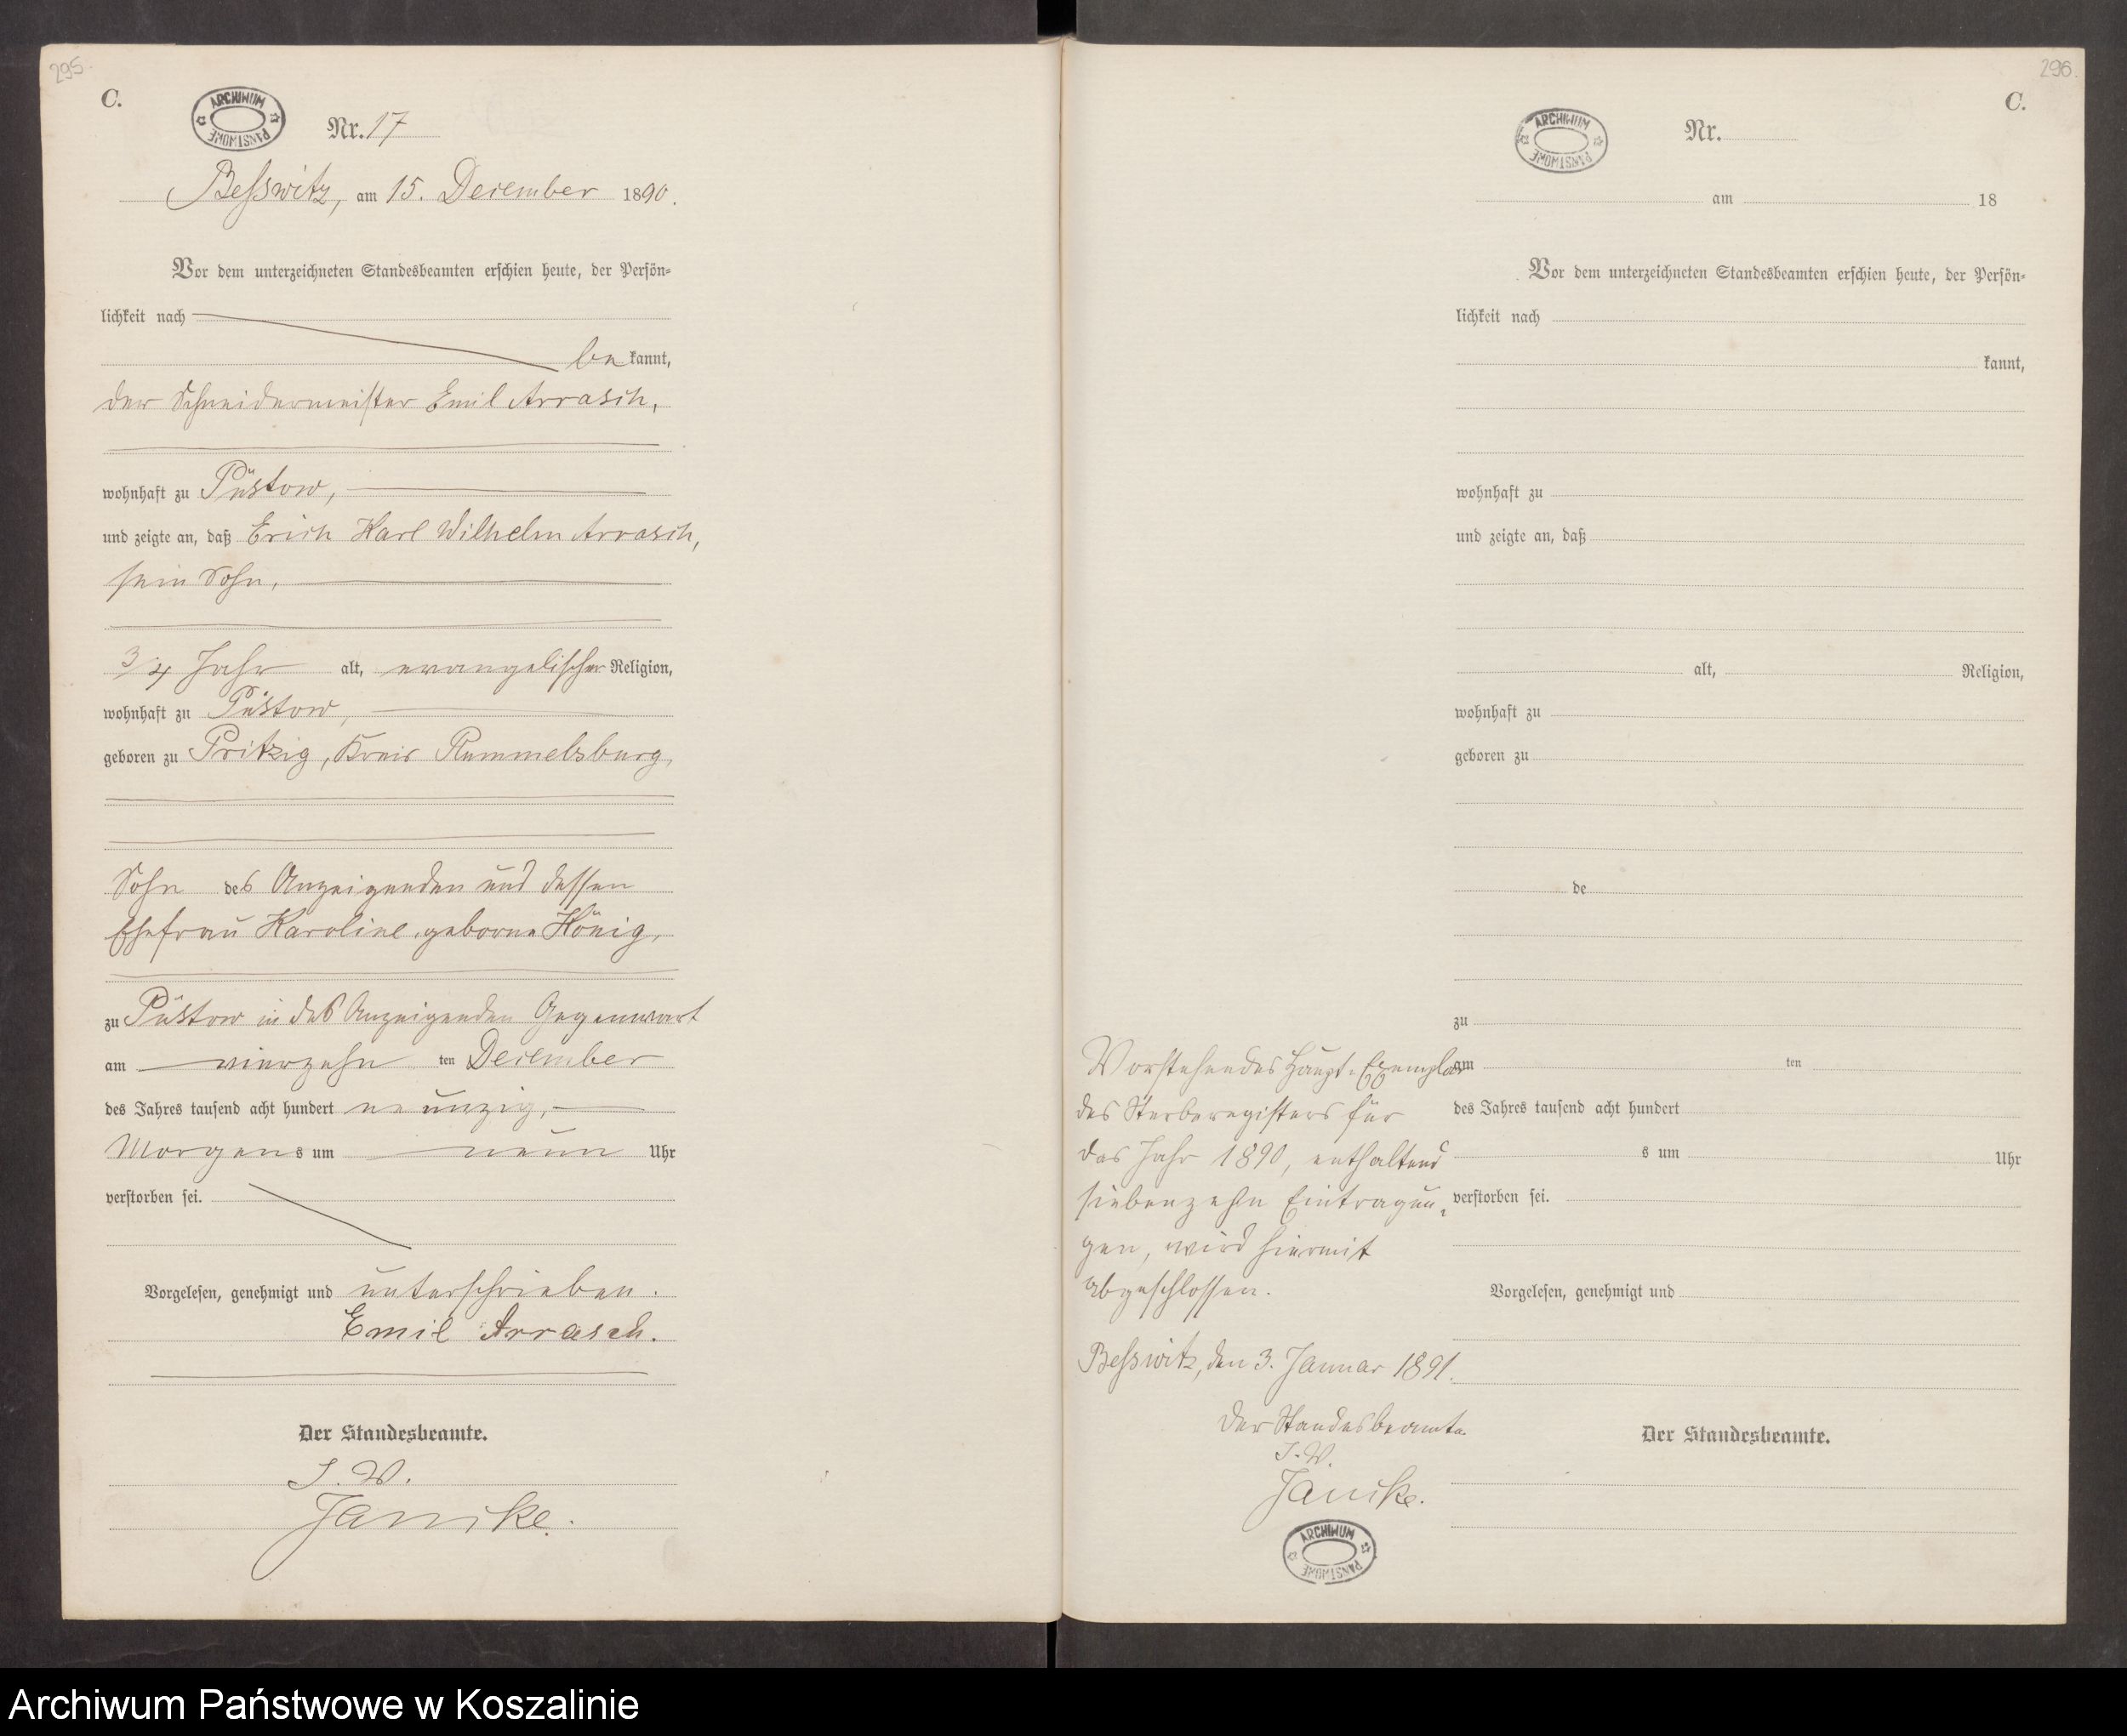 295.
C.
ARCHIWUM PAŃSTWOWE
Nr. 17
Beßwitz, am 15. December 1890.
Vor dem unterzeichneten Standesbeamten erschien heute, der Persön-
lichkeit nach
be kannt,
der Schneidermeister Emil Arrasch,
wohnhaft zu Püstow,
und zeigte an, daß Erich Karl Wilhelm Arrasch,
sein Sohn,
3/4 Jahr alt, evangelischer Religion,
wohnhaft zu Püstow,
geboren zu Pritzig, Kreis Rummelsburg,
Sohn des Anzeigenden und dessen
Ehefrau Karoline, geborne König,
zu Püstow in des Anzeigenden Gegenwart
am vierzehn ten December
des Jahres tausend acht hundert neunzig,
Morgens um neun Uhr
verstorben sei.
Vorgelesen, genehmigt und unterschrieben.
Emil Arrasch.
Der Standesbeamte.
J. V.
Janicke.
296.
C.
ARCHIWUM PAŃSTWOWE
Nr.
am 18
Vor dem unterzeichneten Standesbeamten erschien heute, der Persön-
lichkeit nach
kannt,
wohnhaft zu
und zeigte an, daß
alt, Religion,
wohnhaft zu
geboren zu
de
zu
am ten
des Jahres tausend acht hundert
s um Uhr
verstorben sei.
Vorgelesen, genehmigt und
Der Standesbeamte.
Vorstehendes Haupt-Exemplar
des Sterberegisters für
das Jahr 1890, enthaltend
siebenzehn Eintragun-
gen, wird hiermit
abgeschlossen.
Beßwitz, den 3. Januar 1891.
Der Standesbeamte.
J. V.
Janicke.
ARCHIWUM PAŃSTWOWE
Archiwum Państwowe w Koszalinie